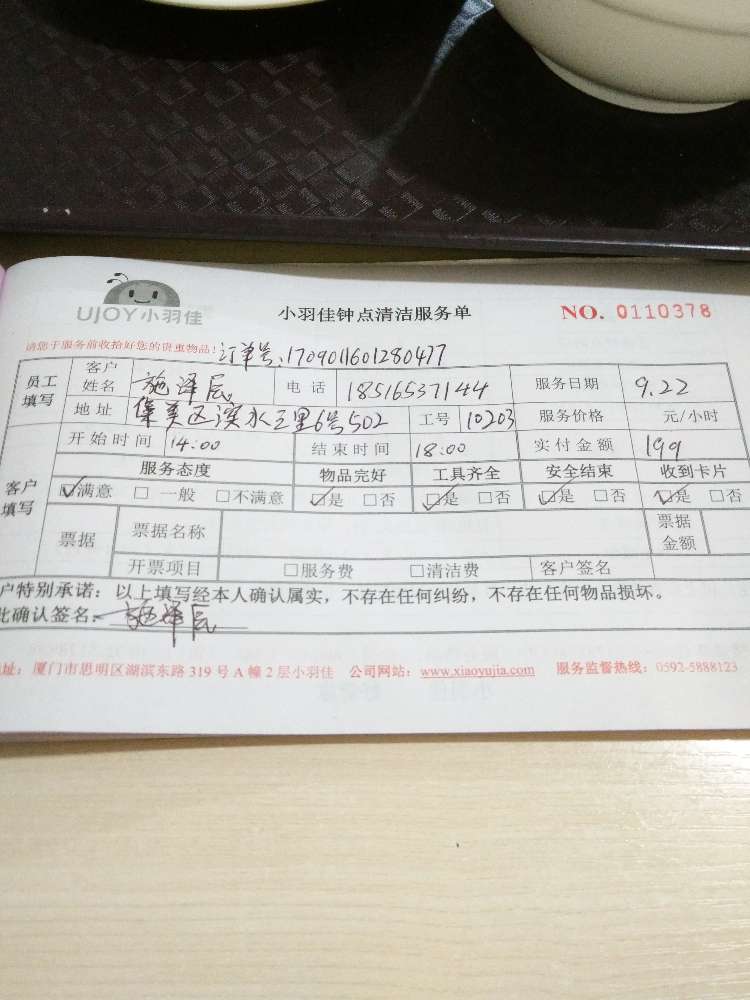 UJOY小羽佳 小羽佳钟点清洁服务单 NO. 0110378
请您于服务前收拾好您的贵重物品! 订单号:1709011601280477
员工填写 客户姓名 施泽辰 电话 18516537144 服务日期 9.22
地址 集美区滨水三里6号502 工号 10203 服务价格 元/小时
客户填写 开始时间 14:00 结束时间 18:00 实付金额 199
服务态度 物品完好 工具齐全 安全结束 收到卡片
☑满意 □一般 □不满意 ☑是 □否 ☑是 □否 ☑是 □否 ☑是 □否
票据 票据名称 票据金额
开票项目 □服务费 □清洁费 客户签名
户特别承诺:以上填写经本人确认属实,不存在任何纠纷,不存在任何物品损坏。
此确认签名: 施泽辰
址:厦门市思明区湖滨东路319号A幢2层小羽佳 公司网站:www.xiaoyujia.com 服务监督热线:0592-5888123